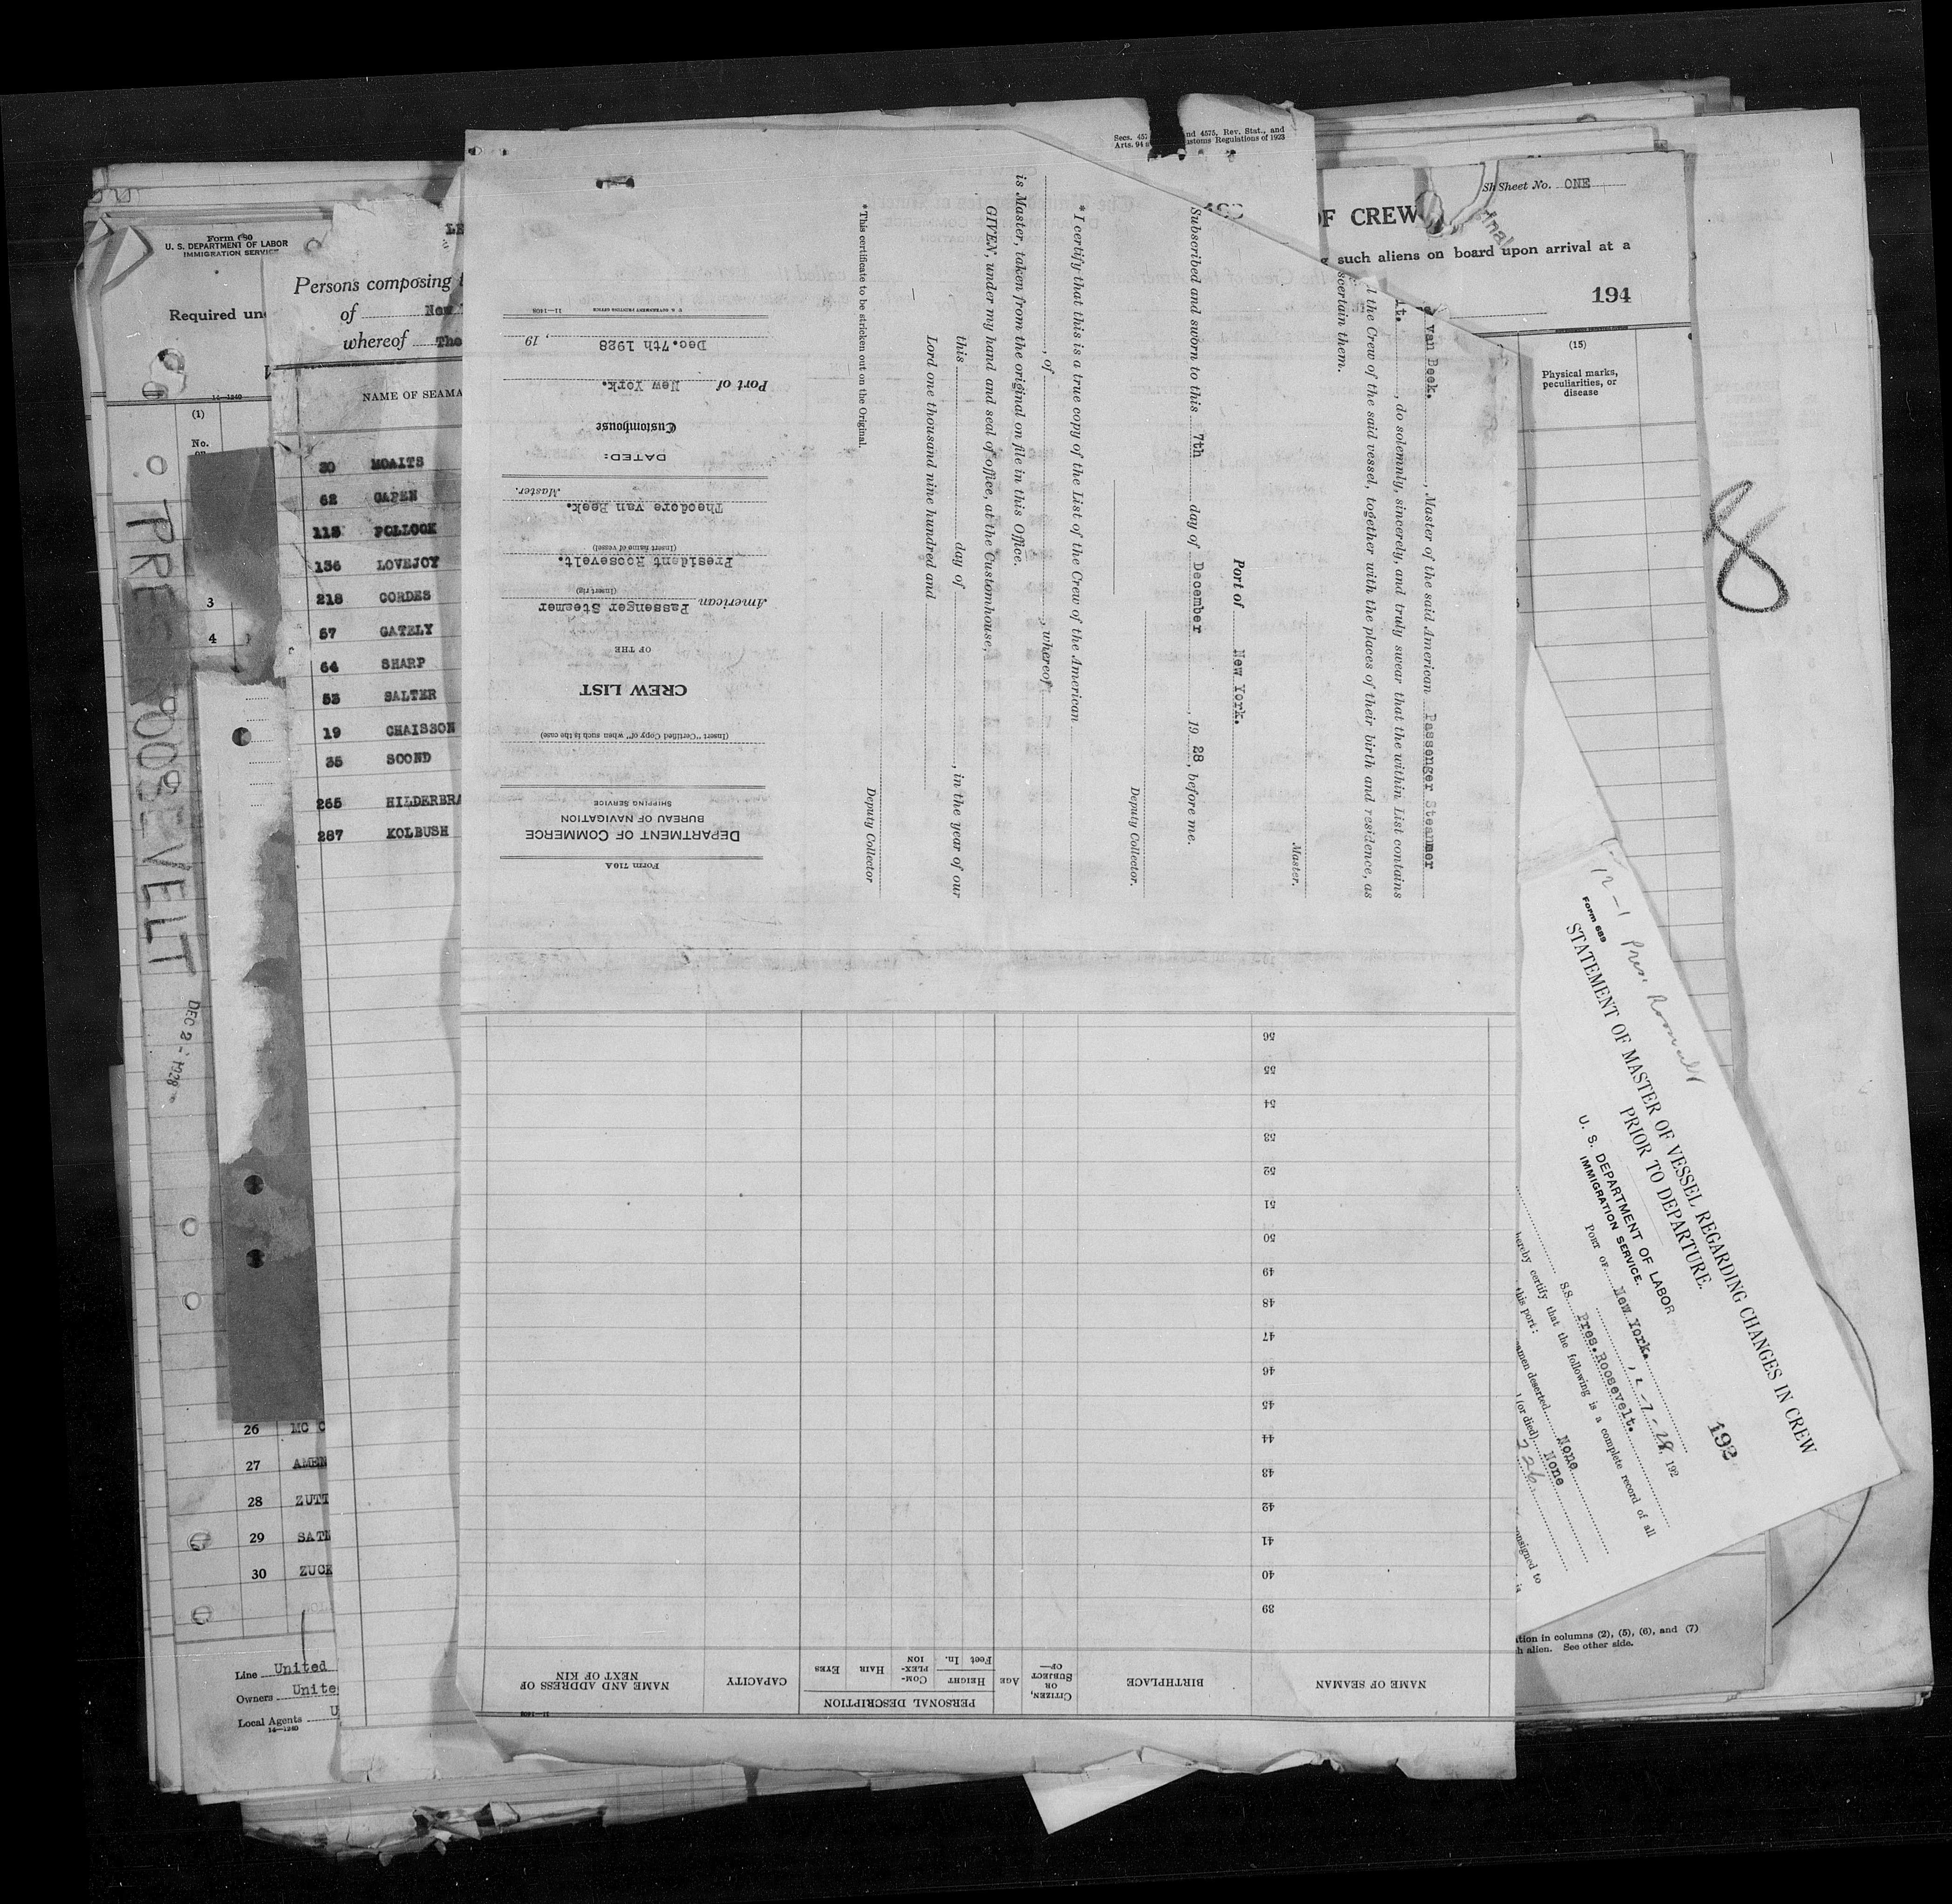 Form 680
U. S. DEPARTMENT OF LABOR
IMMIGRATION SERVICE
Required
14—1240
(1)
No.
on
3
4
PRES ROOSEVELT
DEC 2 - 1928
26 MC C
27 AMEN
28 ZUTT
29 SATN
30 ZUCK
Line United
Owners Unite
Local Agents U
14—1240
Persons composing
of New
whereof The
NAME OF SEAMA
30 MOAITS
62 GAPEN
115 POLLOCK
136 LOVEJOY
218 CORDES
57 GATELY
64 SHARP
53 SALTER
19 CHAISSON
35 SOOND
265 HILDERBRA
287 KOLBUSH
Secs. 457 nd 4575, Rev. Stat., and
Arts. 94 ustoms Regulations of 1923
van Beek. , Master of the said American Passenger Steammer
, do solemnly, sincerely, and truly swear that the within List contains
l the Crew of the said vessel, together with the places of their birth and residence, as
scertain them.
Master.
Port of New York.
Subscribed and sworn to this 7th day of December , 19 28, before me.
Deputy Collector.
* I certify that this is a true copy of the List of the Crew of the American
, of , whereof
is Master, taken from the original on file in this Office.
GIVEN, under my hand and seal of office, at the Customhouse,
this day of , in the year of our
Lord one thousand nine hundred and
Deputy Collector
*This certificate to be stricken out on the Original.
Form 710A
DEPARTMENT OF COMMERCE
BUREAU OF NAVIGATION
SHIPPING SERVICE
(Insert "Certified Copy of" when such is the case)
CREW LIST
OF THE
American Passenger Steamer
(Insert rig)
President Roosevelt.
(Insert name of vessel)
Theodore Van Beek.
Master.
DATED:
Customhouse
Port of New York.
Dec.7th 1928 , 19
U. S. GOVERNMENT PRINTING OFFICE 11—1408
11—1408
NAME OF SEAMAN
BIRTHPLACE
CITIZEN, OR SUBJECT OF—
AGE
PERSONAL DESCRIPTION
HEIGHT
Feet In.
COM-PLEX-ION
HAIR
EYES
CAPACITY
NAME AND ADDRESS OF NEXT OF KIN
39
40
41
42
43
44
45
46
47
48
49
50
51
52
53
54
55
56
Sheet No. ONE
OF CREW
such aliens on board upon arrival at a
194
(15)
Physical marks,
peculiarities, or
disease
8
12-1 Pres. Roosevelt
Form 689
STATEMENT OF MASTER OF VESSEL REGARDING CHANGES IN CREW
PRIOR TO DEPARTURE.
U. S. DEPARTMENT OF LABOR
IMMIGRATION SERVICE.
192
PORT OF New York. , 192
S.S. Pres.Roosevelt.
hereby certify that the following is a complete record of all
this port:
amen deserted None
(or died) None
226
onsigned to
is
ation in columns (2), (5), (6), and (7)
h alien. See other side.